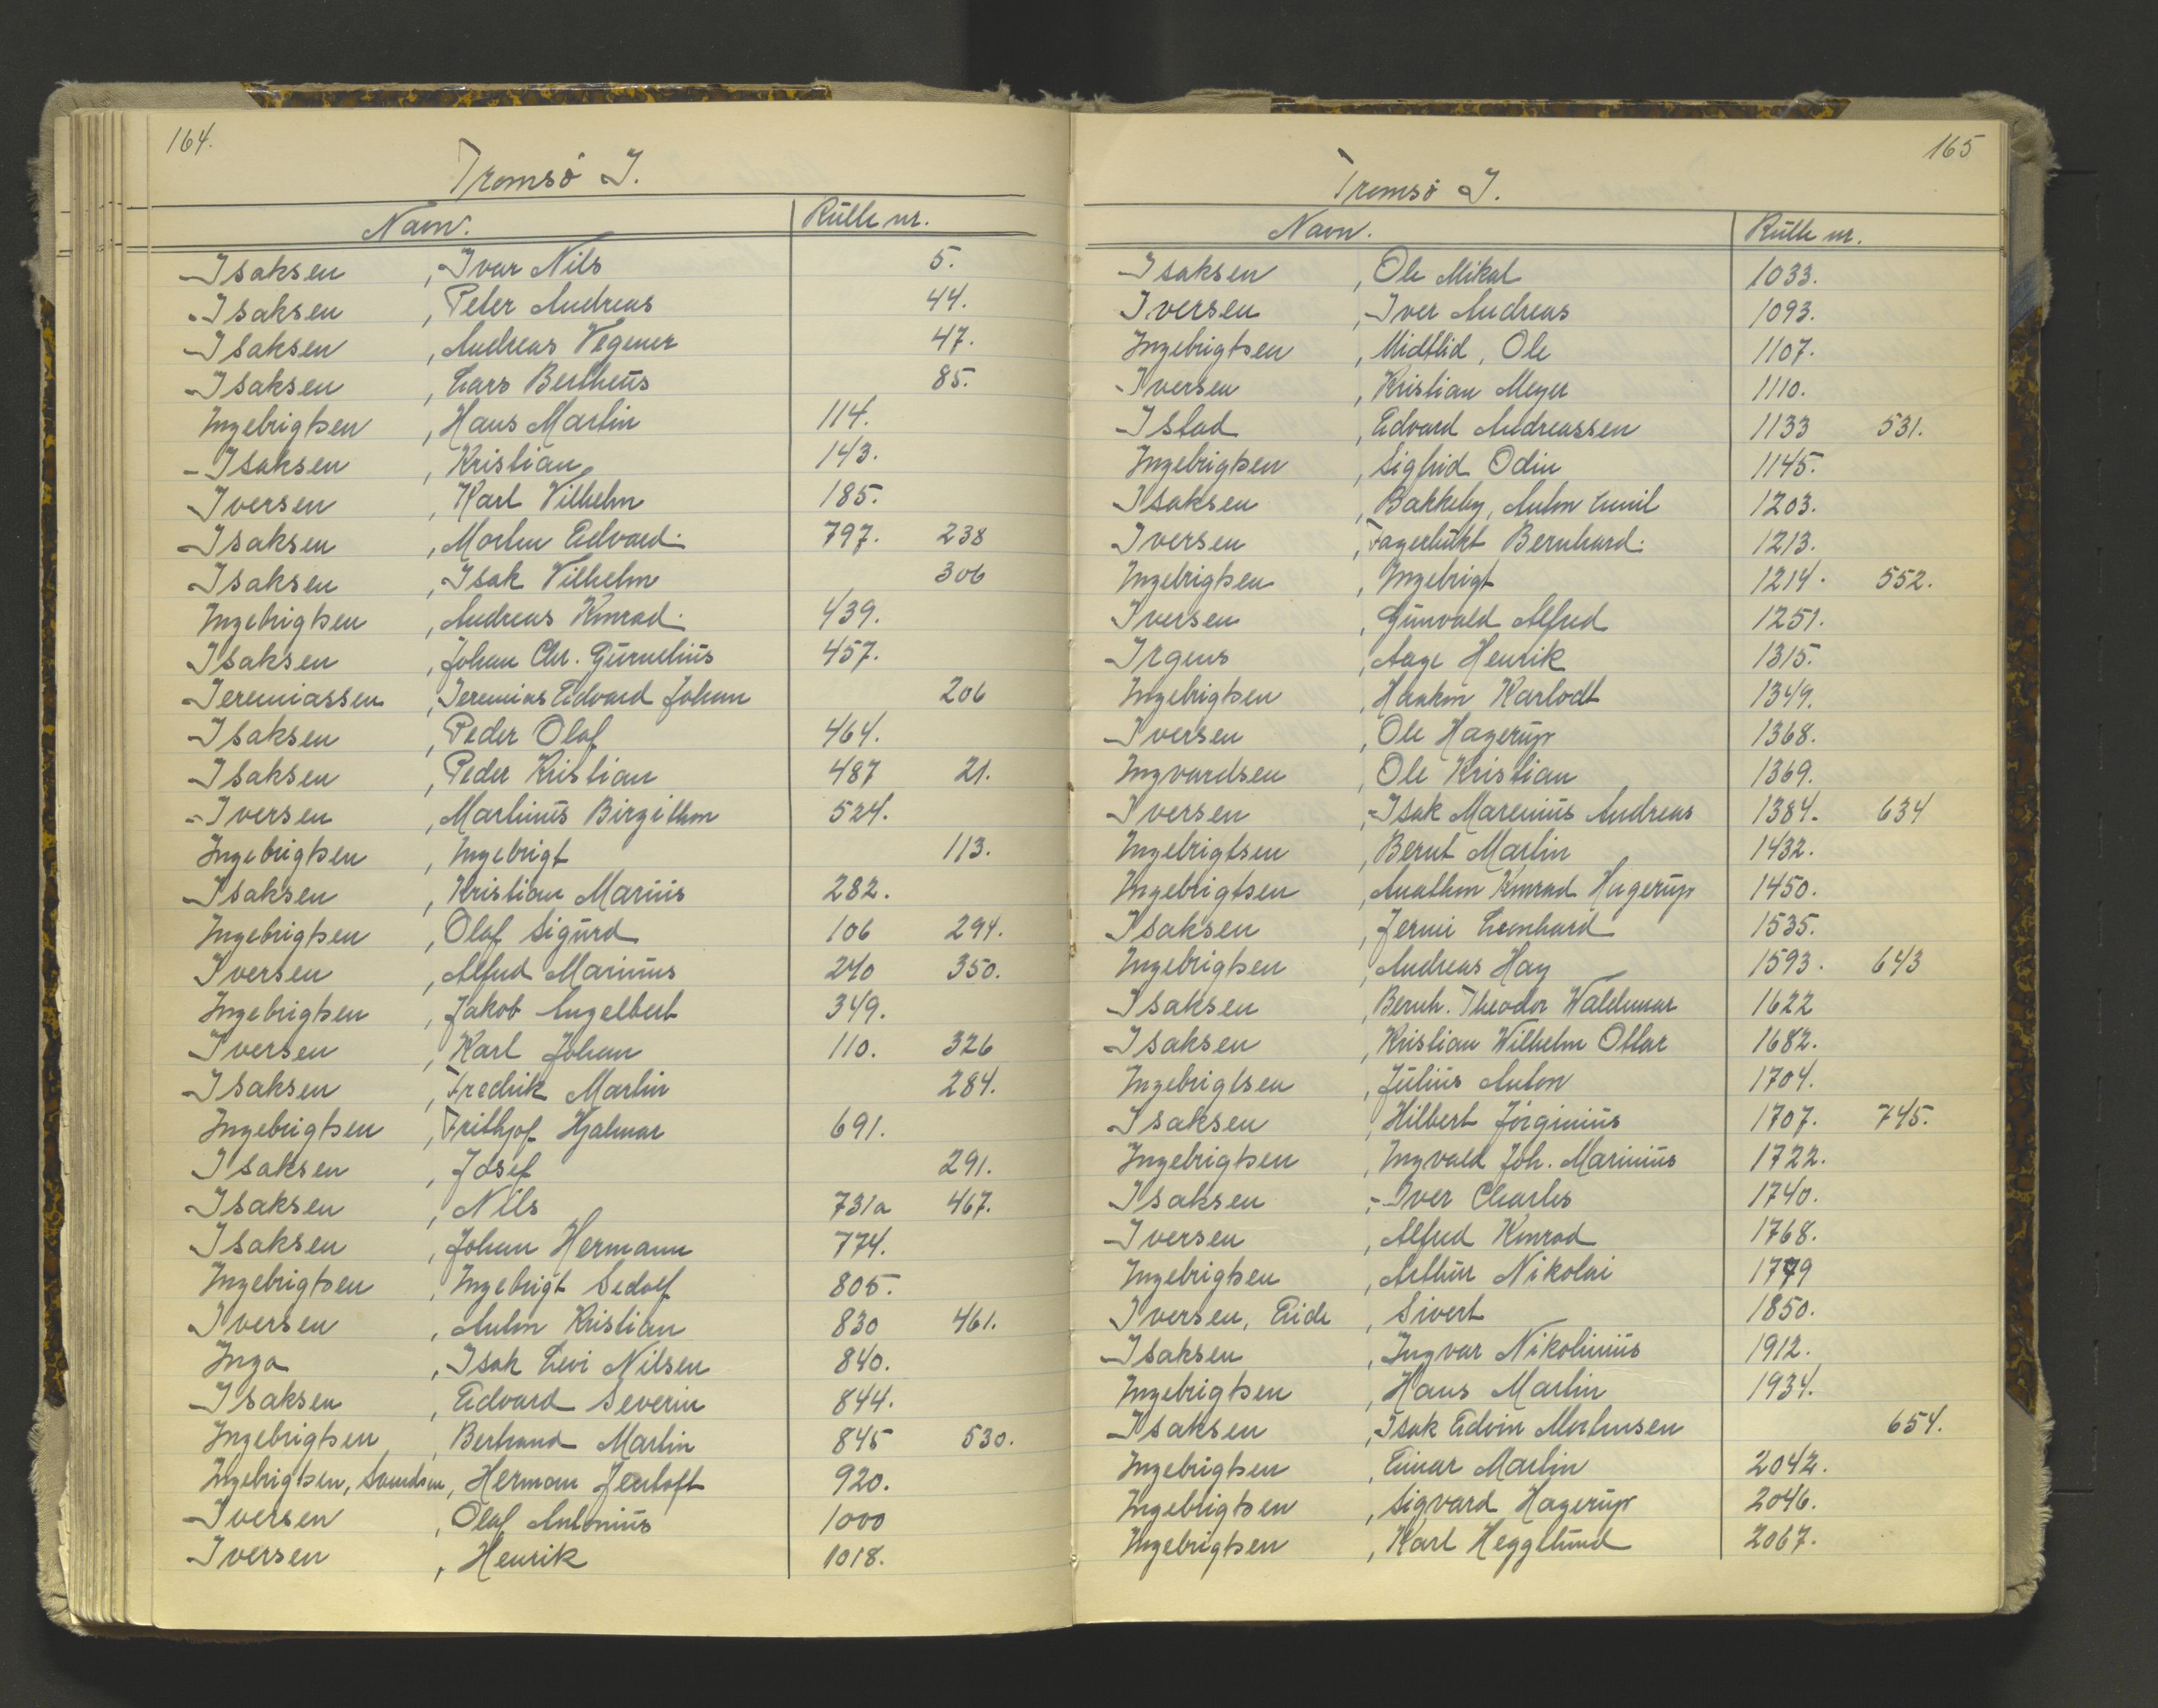 164.
Tromsø I.
Navn. Rulle nr.
Isaksen , Ivar Nils 5.
Isaksen , Peter Andreas 44.
Isaksen , Andreas Vegener 47.
Isaksen , Lars Bertheus 85.
Ingebrigtsen , Hans Martin 114.
Isaksen , Kristian 143.
Iversen , Karl Vilhelm 185.
Isaksen , Morten Edvard. 797. 238
Isaksen , Isak Vilhelm 306
Ingebrigtsen , Andreas Konrad. 439.
Isaksen , Johan Chr. Gurnelius 457.
Jeremiassen , Jeremias Edvard Johan 206
Isaksen , Peder Olaf 464.
Isaksen , Peder Kristian 487 21.
Iversen , Martinus Birgithon 524.
Ingebrigtsen , Ingebrigt 113.
Isaksen , Kristian Marius 282.
Ingebrigtsen , Olaf Sigurd 106 294.
Iversen , Alfred Marinius 240 350.
Ingebrigtsen , Jakob Angelbert 349.
Iversen , Karl Johan 110. 326
Isaksen , Fredrik Martin 284.
Ingebrigtsen , Frithjof Hjalmar 691.
Isaksen , Josef 291.
Isaksen , Nils 731a 467.
Isaksen , Johan Hermann 774.
Ingebrigtsen , Ingebrigt Sedolf 805.
Iversen , Anton Kristian 830 461.
Inga , Isak Levi Nilsen 840.
Isaksen , Edvard Severin 844.
Ingebrigtsen , Bertrand Martin 845 530.
Ingebrigtsen, Svendsen, Herman Jentoft 920.
Iversen , Olaf Antonius 1000
Iversen , Henrik 1018.
165
Tromsø I.
Navn. Rulle nr.
Isaksen , Ole Mikal 1033.
Iversen , Iver Andreas 1093.
Ingebrigtsen , Midtlid, Ole 1107.
Iversen , Kristian Meyer 1110.
Istad , Edvard Andreassen 1133 531.
Ingebrigtsen , Sigfrid Odin 1145.
Isaksen , Bakkeby, Anton Emil 1203.
Iversen , Fagerbukt Bernhard. 1213.
Ingebrigtsen , Ingebrigt 1214. 552.
Iversen , Gunvald Alfred 1251.
Irgens , Aage Henrik 1315.
Ingebrigtsen , Haakon Karlodt 1349.
Iversen , Ole Hagerup 1368.
Ingvardsen , Ole Kristian 1369.
Iversen , Isak Marenius Andreas 1384. 634
Ingebrigtsen , Bernt Martin 1432.
Ingebrigtsen , Anathon Konrad Hagerup 1450.
Isaksen , Jermi Leonhard 1535.
Ingebrigtsen , Andreas Hay 1593. 643
Isaksen , Bernh. Theodor Waldemar 1622
Isaksen , Kristian Wilhelm Ottar 1682.
Ingebrigtsen , Julius Anton 1704.
Isaksen , Hilbert Jørginius 1707. 745.
Ingebrigtsen , Ingvald Joh. Marinius 1722.
Isaksen , Iver Charles 1740.
Iversen , Alfred Konrad 1768.
Ingebrigtsen , Arthur Nikolai 1779
Iversen, Eide , Sivert 1850.
Isaksen , Ingvar Nikolinius 1912.
Ingebrigtsen , Hans Martin 1934.
Isaksen , Isak Edvin Mortensen 654.
Ingebrigtsen , Einar Martin 2042.
Ingebrigtsen , Sigvard Hagerup 2046.
Ingebrigtsen , Karl Hegglund 2067.